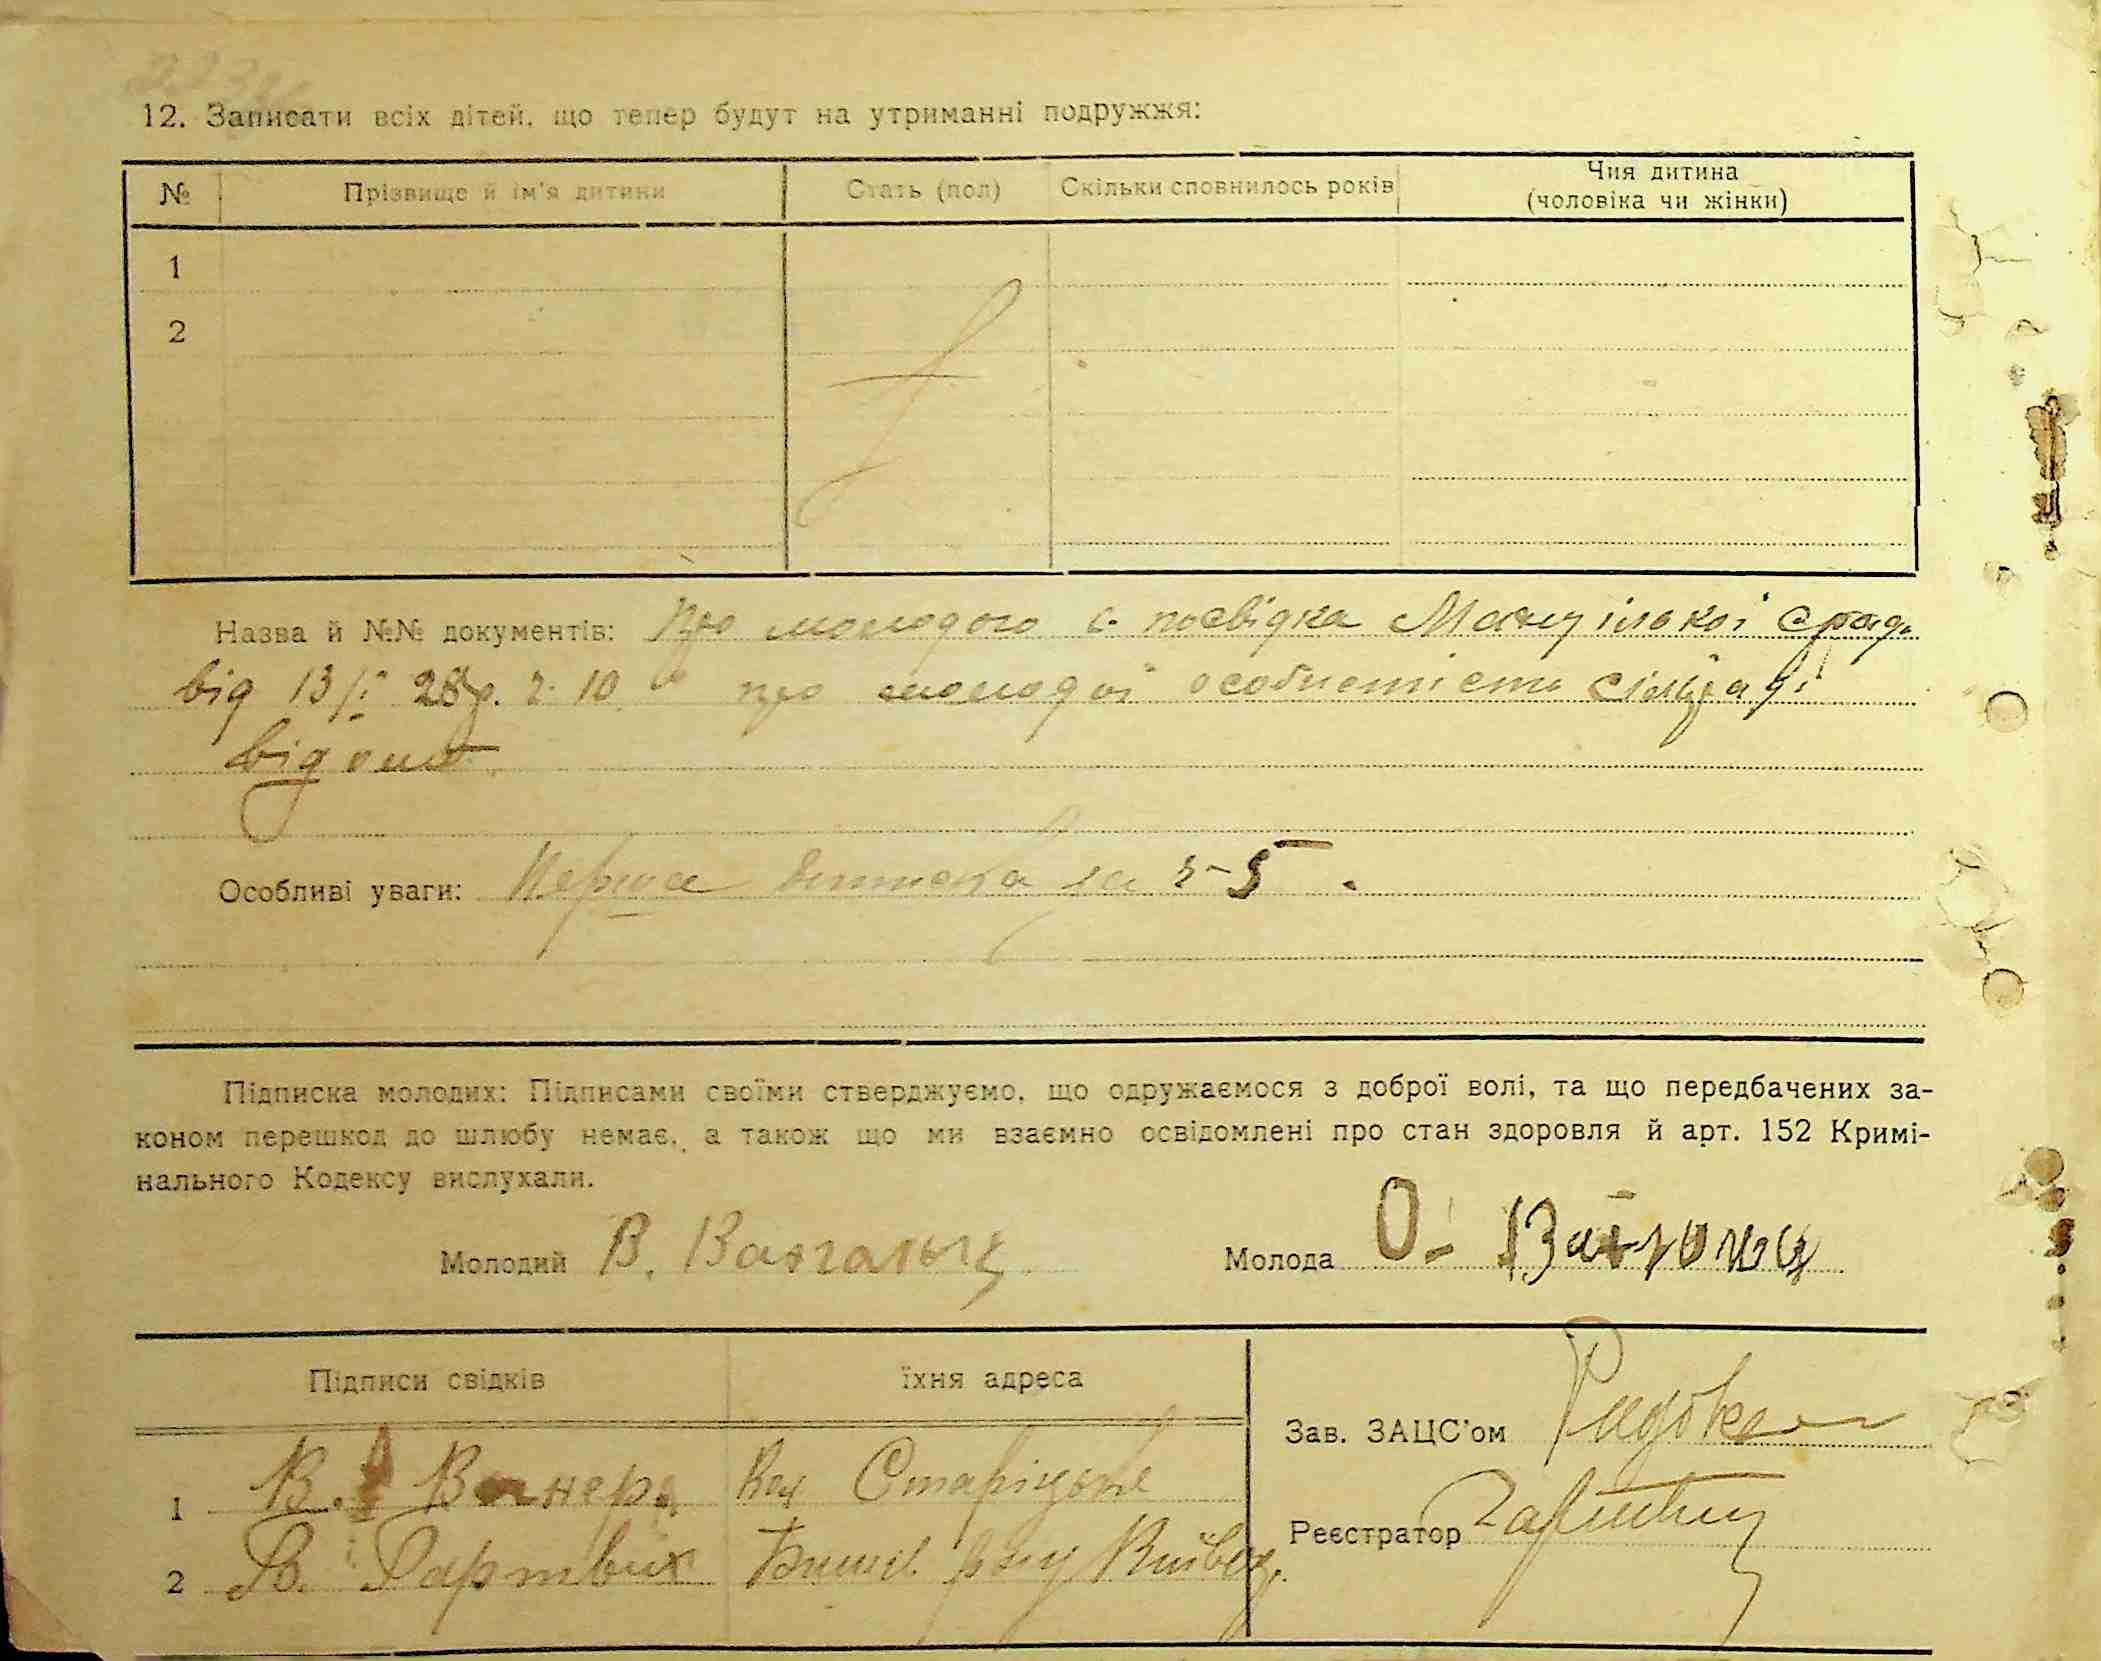 12. Записати всіх дітей, що тепер будут на утриманні подружжя:
№ Прізвище й ім'я дитини Стать (пол) Скільки сповнилось років Чия дитина
(чоловіка чи жінки)
1
2
Назва й №№ документів: Про молодого с. посвідка
від 13/I 28р. ч. 10 про молодої особистість сільраді
відома
Особливі уваги: Перша виписка за ч-5.
Підписка молодих: Підписами своїми стверджуємо, що одружаємося з доброї волі, та що передбачених за-
коном перешкод до шлюбу немає, а також що ми взаємно освідомлені про стан здоровля й арт. 152 Кримі-
нального Кодексу вислухали.
Молодий В. Молода О.
Підписи свідків їхня адреса
Зав. ЗАЦС'ом
1 В. Вагнер
Реєстратор
2 Гартвих